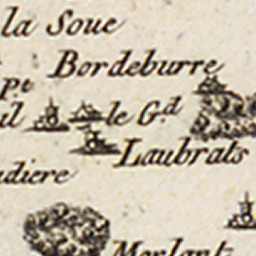 la Soue
Bordeburre
Pe
le Gd
Laubrats
diere
Morlant